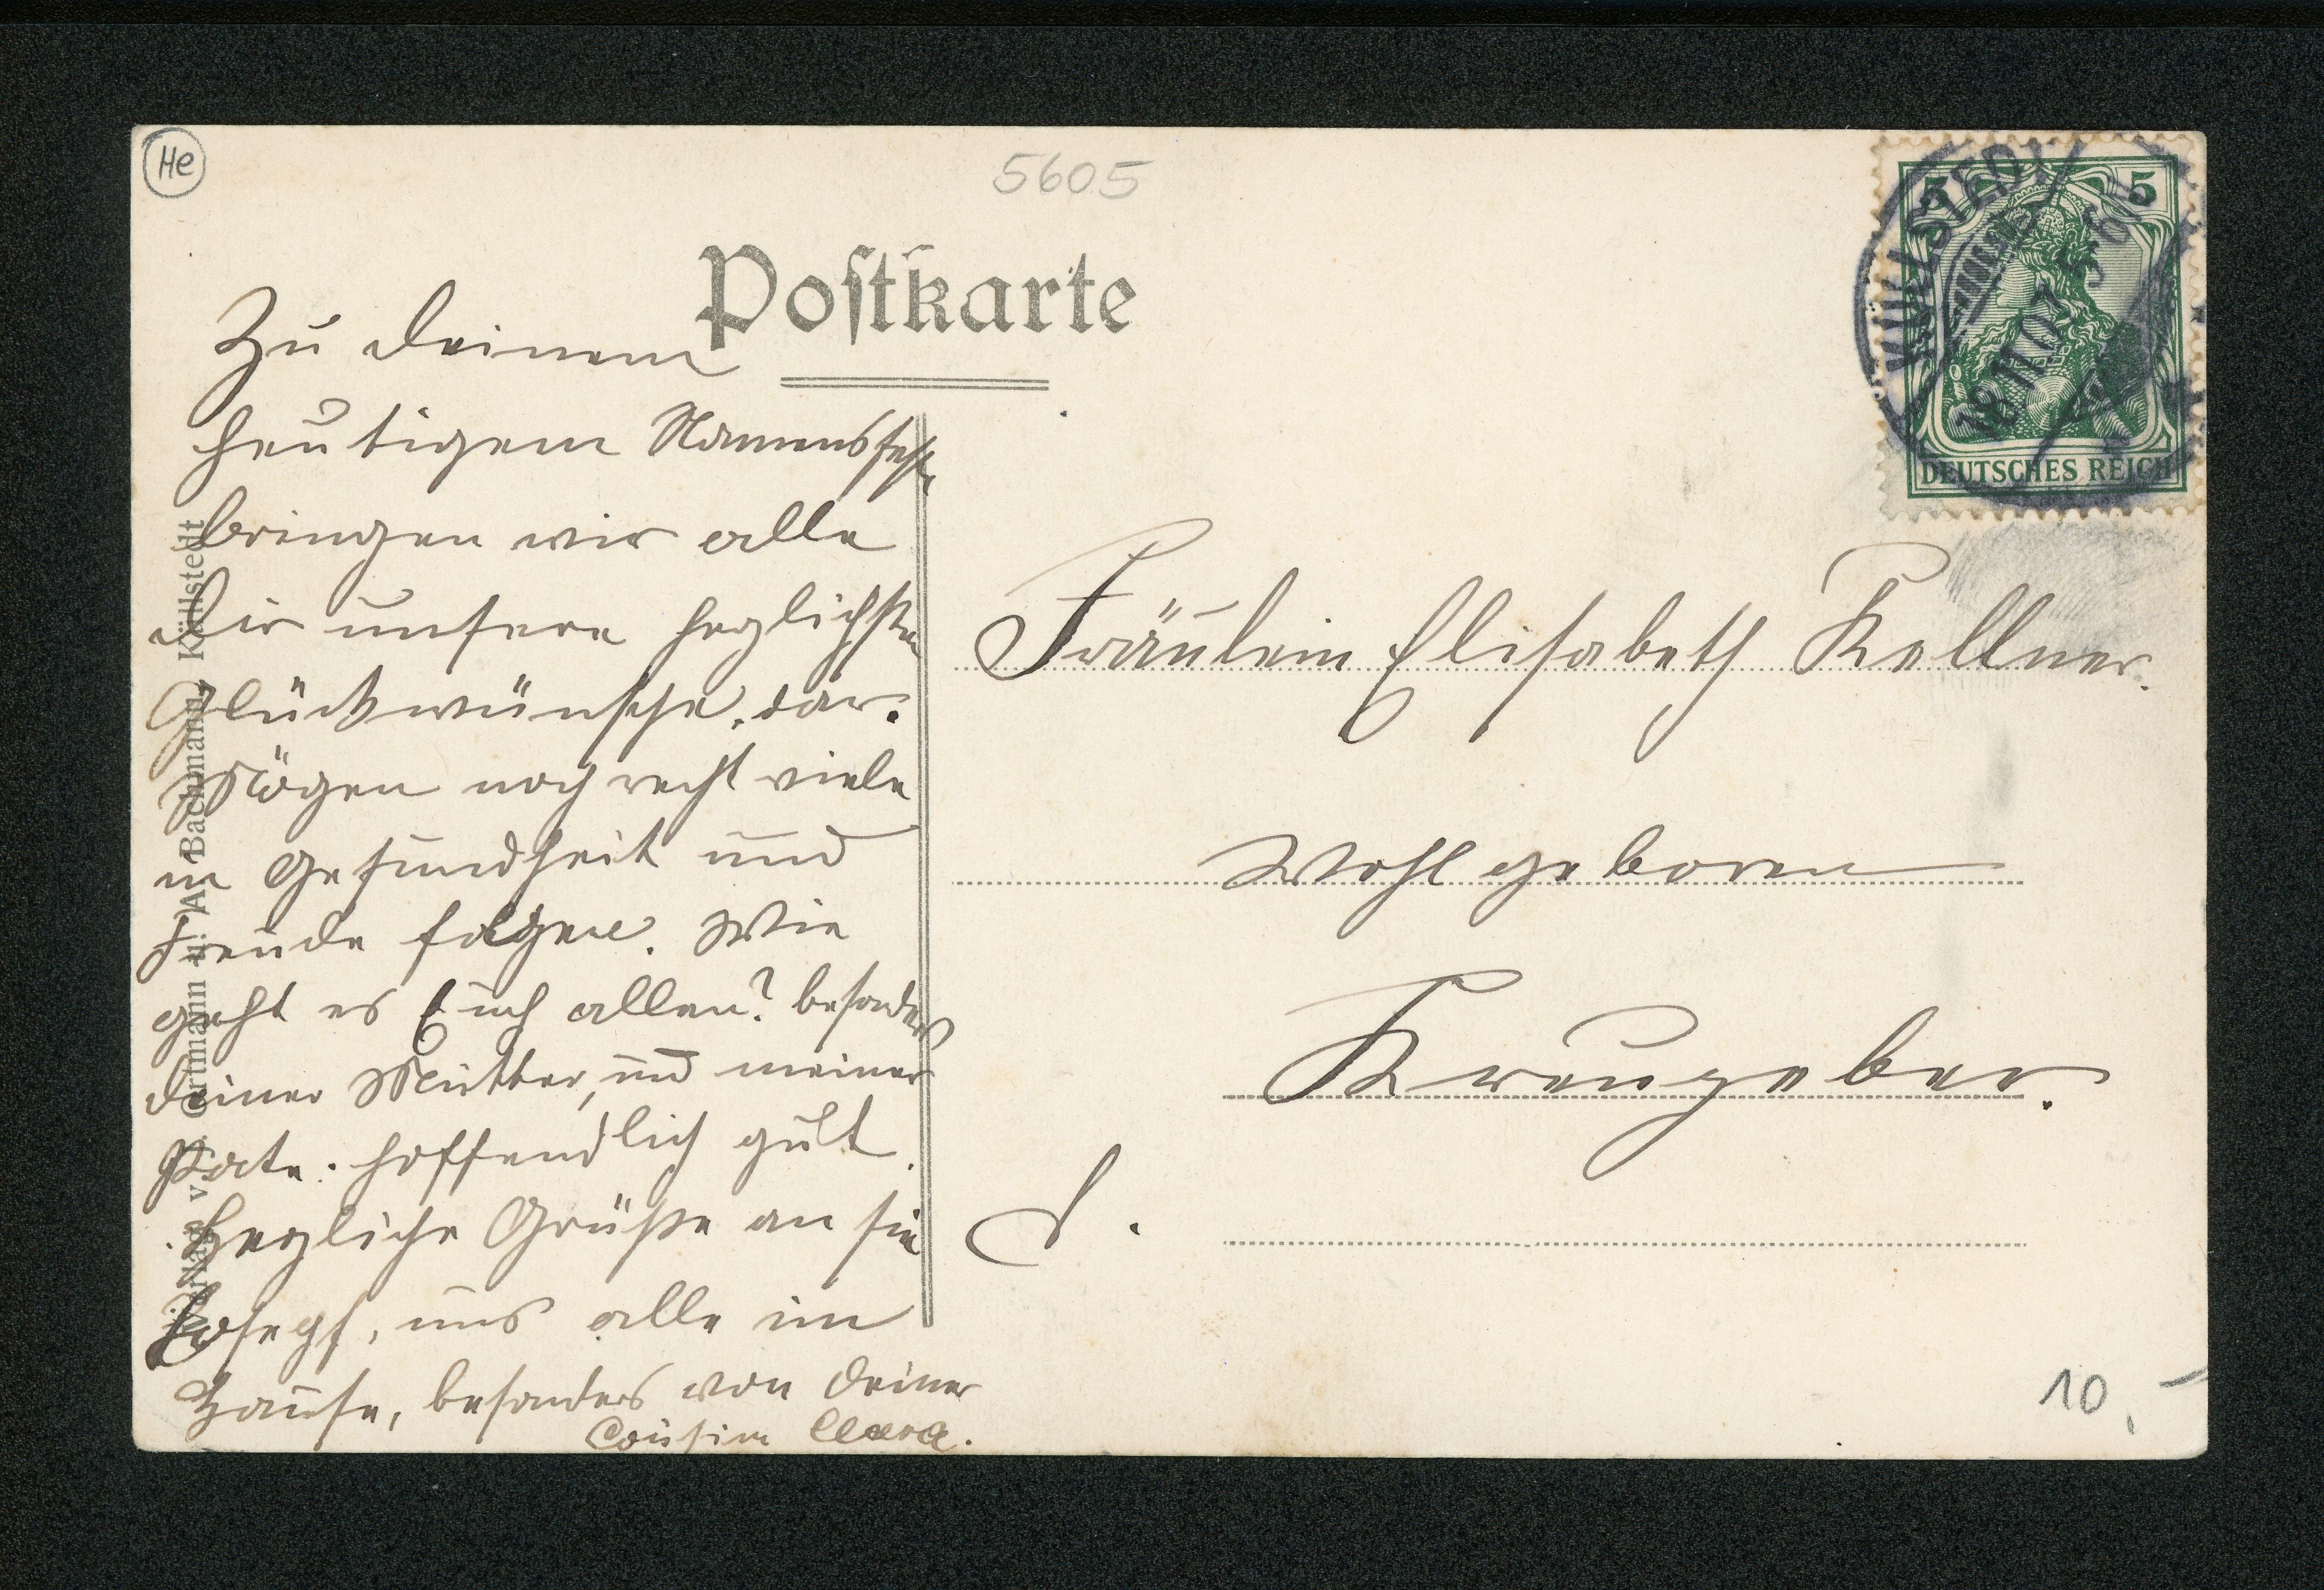 He
5605
Postkarte
Zu deinem
heutigem Namensfeste
bringen wir alle
dir unsere herzlichsten
Glückwünsche dar.
Mögen noch recht viele
in Gesundheit und
Freude folgen. Wie
geht es Euch allen? besonders
deiner Mutter, und meiner
Pate. hoffendlich gut.
Herzliche Grüße an sie
Joseph, uns alle im
Hause, besonders von deiner
Cousine Clara.
Verlag v. Ortmann u. A. Bachmann, Küllstedt
5 5
DEUTSCHES REICH
KÜLLSTEDT
18.11.07
Fräulein Elisabeth Kellner.
Wohlgeboren
Kreuzeber.
10,-